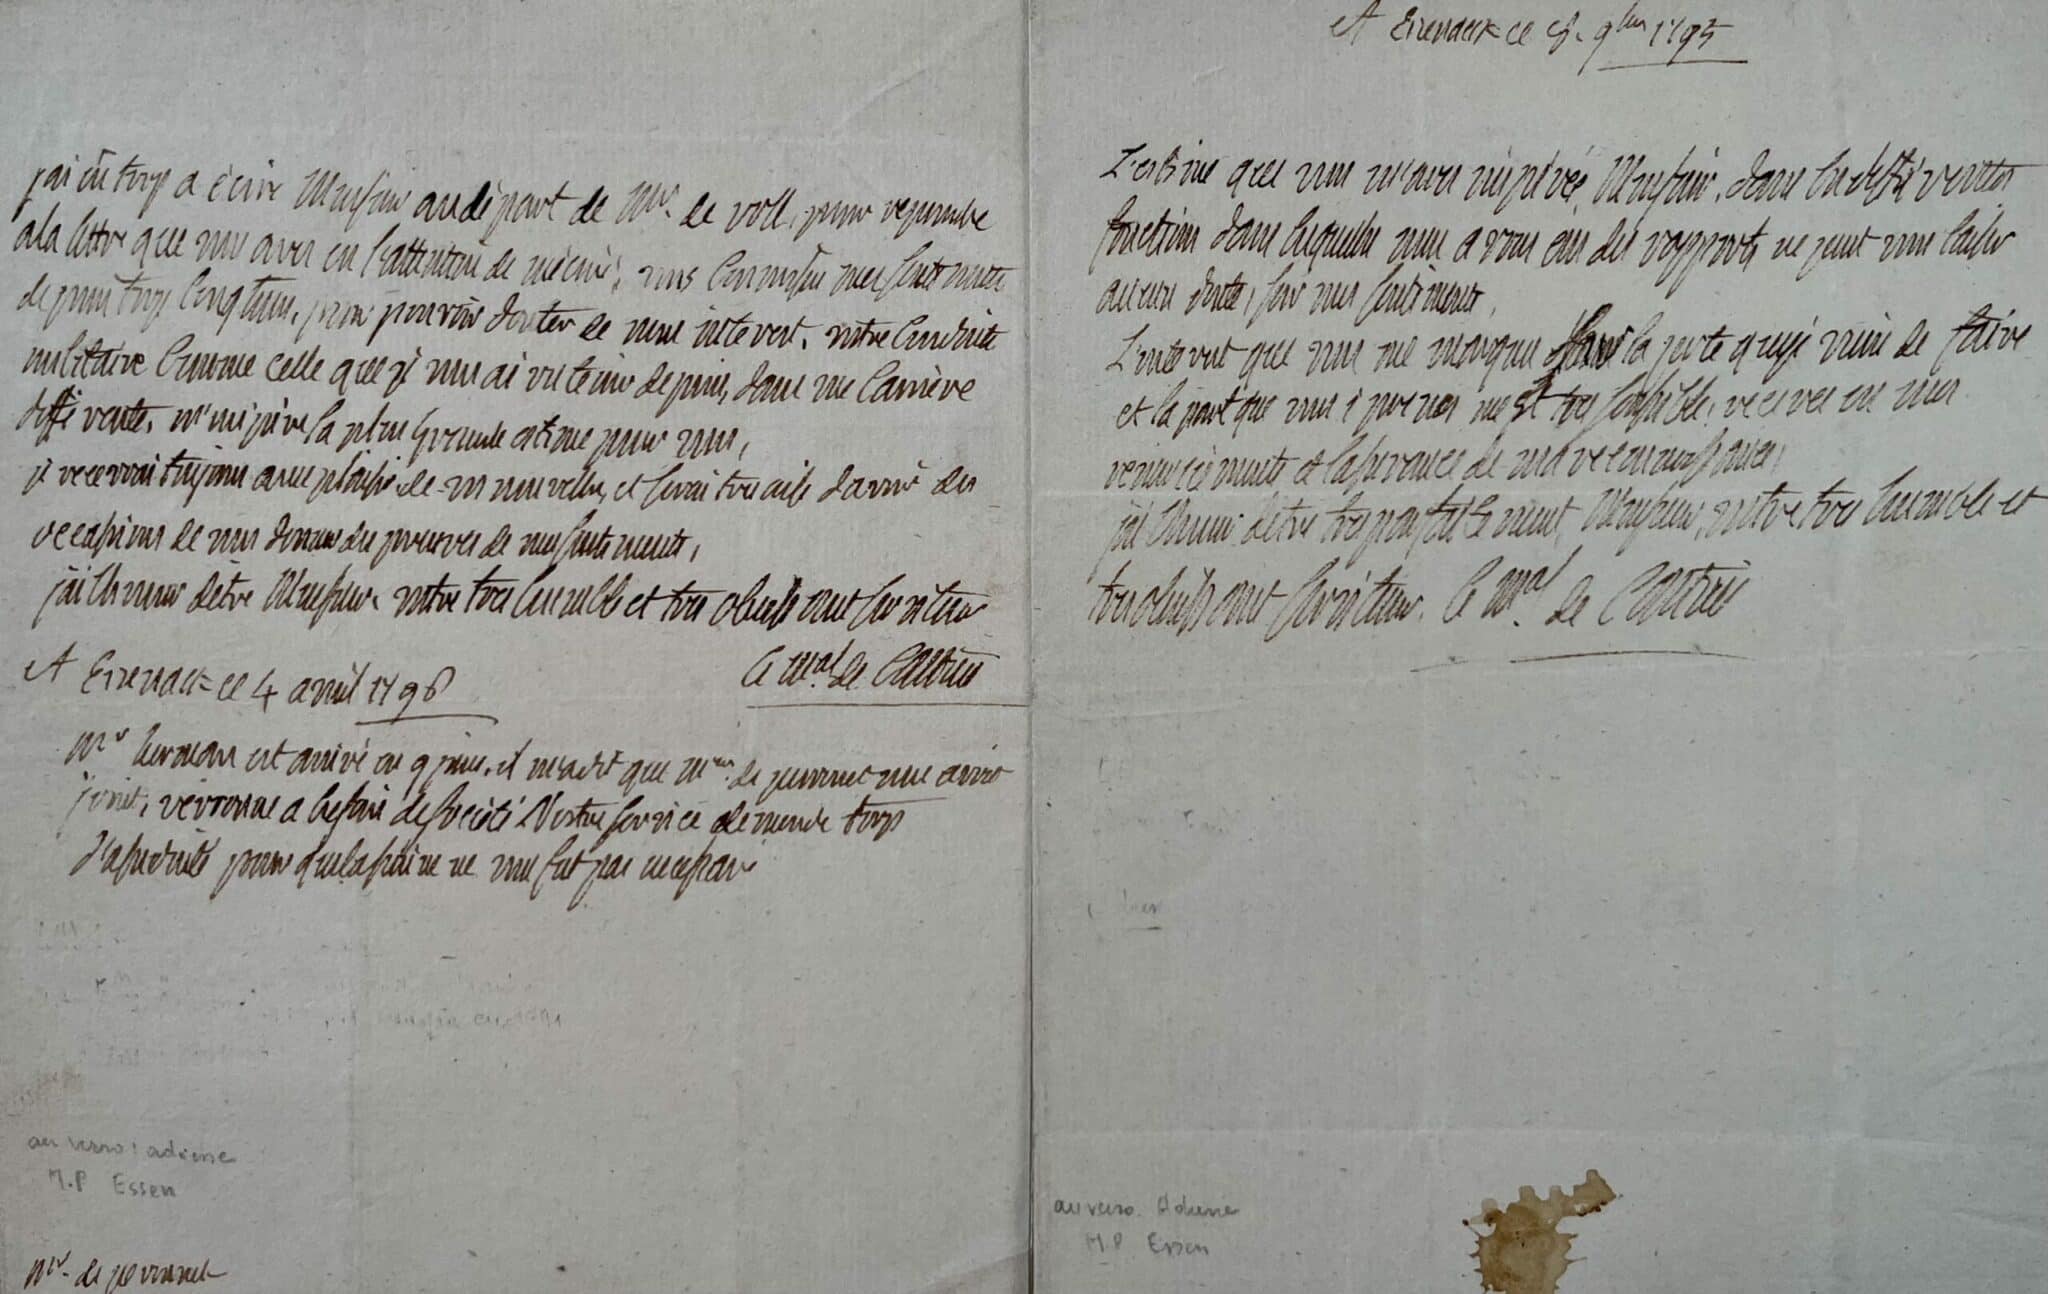 j'ai eu trop a écrire Monsieur au départ de Mr. de voll, pour repondre
a la lettre que vous avez eu l'attention de m'ecrire, vous connoissez mes sentiments
depuis trop longtems, pour pouvoir douter de mon interest, votre conduite
militaire comme celle que je vous ai vu tenir depuis, dans une carriere
differente, m'inspire la plus grande estime pour vous,
je recevrai toujours avec plaisir de vos nouvelles, et serai tres aise d'avoir des
occasions de vous donner des preuves de mes sentiments,
j'ai l'honneur d'etre Monsieur, votre tres humble et tres obeissant serviteur
le mal. de Castries
A Eisenack ce 4 avril 1796
Mr herman est arrivé en 9 jours, il m'a dit que de
veronne a besoin de societé Vostre service demende trop
d'assiduité pour que la ne vous soit pas necessaire
au verso : adresse
M.P Essen
Mr. de
A Eisenack ce 8. 9bre 1795
L'estime que vous m'avez inspirée, Monsieur, dans les differentes
fonctions dans lesquelles nous avons eu des rapports ne peut vous laisser
aucun doute, sur mes sentiments,
L'interest que vous me marquez dans la perte que je viens de faire
et la part que vous i prenez m'est tres sensible, recevez en mes
remerciements et l'assurance de ma reconnoissance,
j'ai l'honneur d'etre tres parfaitement, Monsieur, votre tres humble et
tres obeissant serviteur. le mal. de Castries
au verso. Adresse
M.P Essen